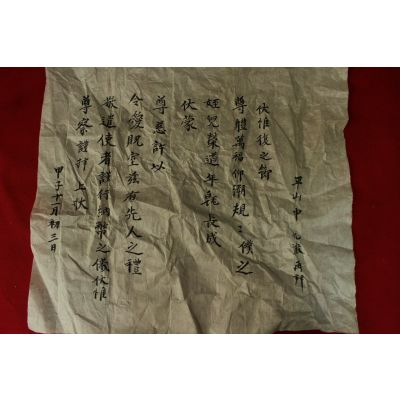 平山申 再拜
伏惟復之節
尊體萬福仰溯規〻僕之
姪兒榮道年旣長成
伏蒙
尊慈許以
令愛貺室玆有先人之禮
敬遣使者謹行納幣之儀伏惟
尊察謹拜 上狀
甲子十月初三日